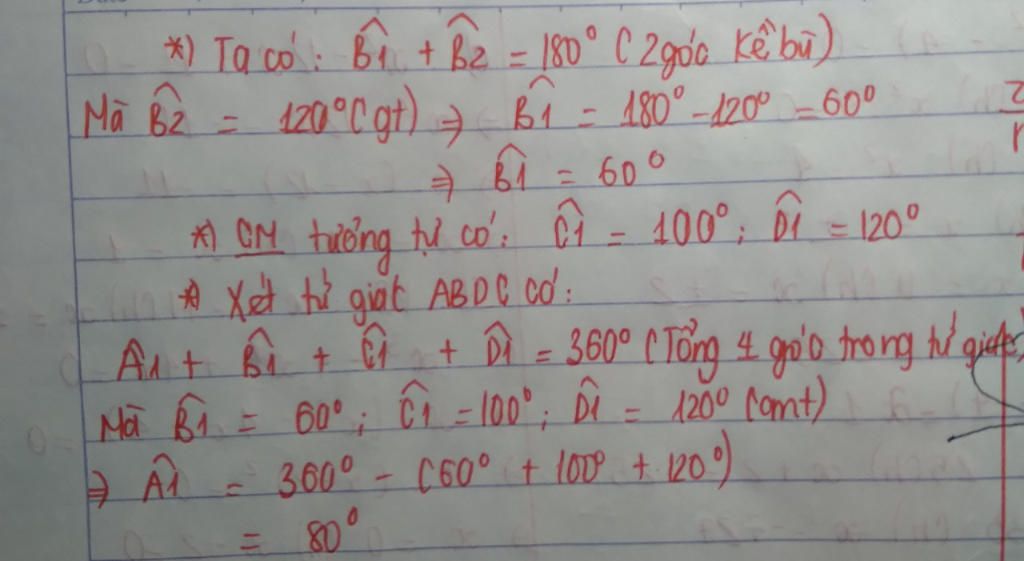 *) Ta có: B̂1 + B̂2 = 180° (2 góc kề bù)
Mà B̂2 = 120° (gt) ⇒ B̂1 = 180° - 120° = 60°
⇒ B̂1 = 60°
*) CM tương tự có: Ĉ1 = 100°; D̂1 = 120°
*) Xét tứ giác ABDC có:
Â1 + B̂1 + Ĉ1 + D̂1 = 360° (Tổng 4 góc trong tứ giác)
Mà B̂1 = 60°; Ĉ1 = 100°; D̂1 = 120° (cmt)
⇒ Â1 = 360° - (60° + 100° + 120°)
= 80°